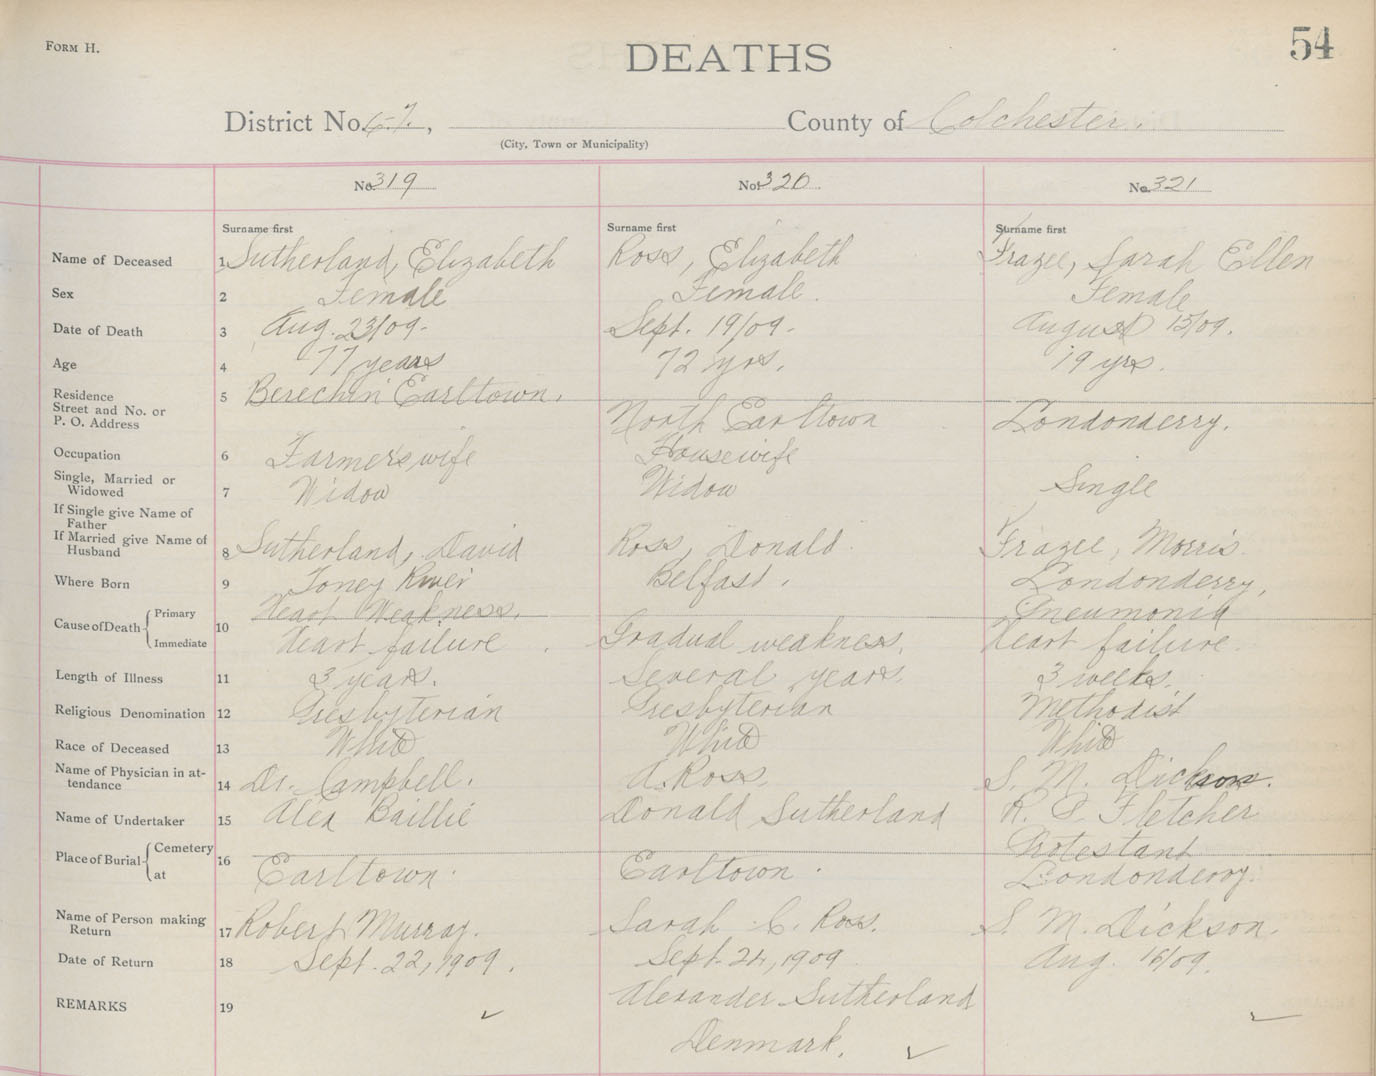 FORM H.
54
DEATHS
District No. 67., County of Colchester.
(City, Town or Municipality)
No. 319 No. 320 No. 321
Surname first Surname first Surname first
Name of Deceased 1 Sutherland, Elizabeth Ross, Elizabeth Frazee, Sarah Ellen
Sex 2 Female Female. Female
Date of Death 3 Aug. 23/09- Sept. 19/09- August 15/09.
Age 4 77 years 72 yrs. 19 yrs.
Residence 5 Berechin Earltown.
Street and No. or North Earltown Londonderry.
P. O. Address
Occupation 6 Farmer's wife Housewife
Single, Married or
Widowed 7 Widow Widow Single
If Single give Name of
Father
If Married give Name of
Husband 8 Sutherland, David Ross, Donald Frazee, Morris
Where Born 9 Toney River Belfast. Londonderry,
Cause of Death Primary Heart Weakness. Pneumonia
10 Immediate Heart failure. Gradual weakness. Heart failure.
Length of Illness 11 3 years. Several years. 3 weeks.
Religious Denomination 12 Presbyterian Presbyterian Methodist
Race of Deceased 13 White White White
Name of Physician in at-
tendance 14 Dr. Campbell. A. Ross. S. M. Dickson.
Name of Undertaker 15 Alex Baillie Donald Sutherland R. S. Fletcher
Place of Burial Cemetery Protestant
16 at Earltown. Earltown. Londonderry.
Name of Person making
Return 17 Robert Murray. Sarah C. Ross. S. M. Dickson.
Date of Return 18 Sept. 22, 1909. Sept. 24, 1909 Aug. 16/09.
REMARKS 19 Alexander Sutherland
Denmark.